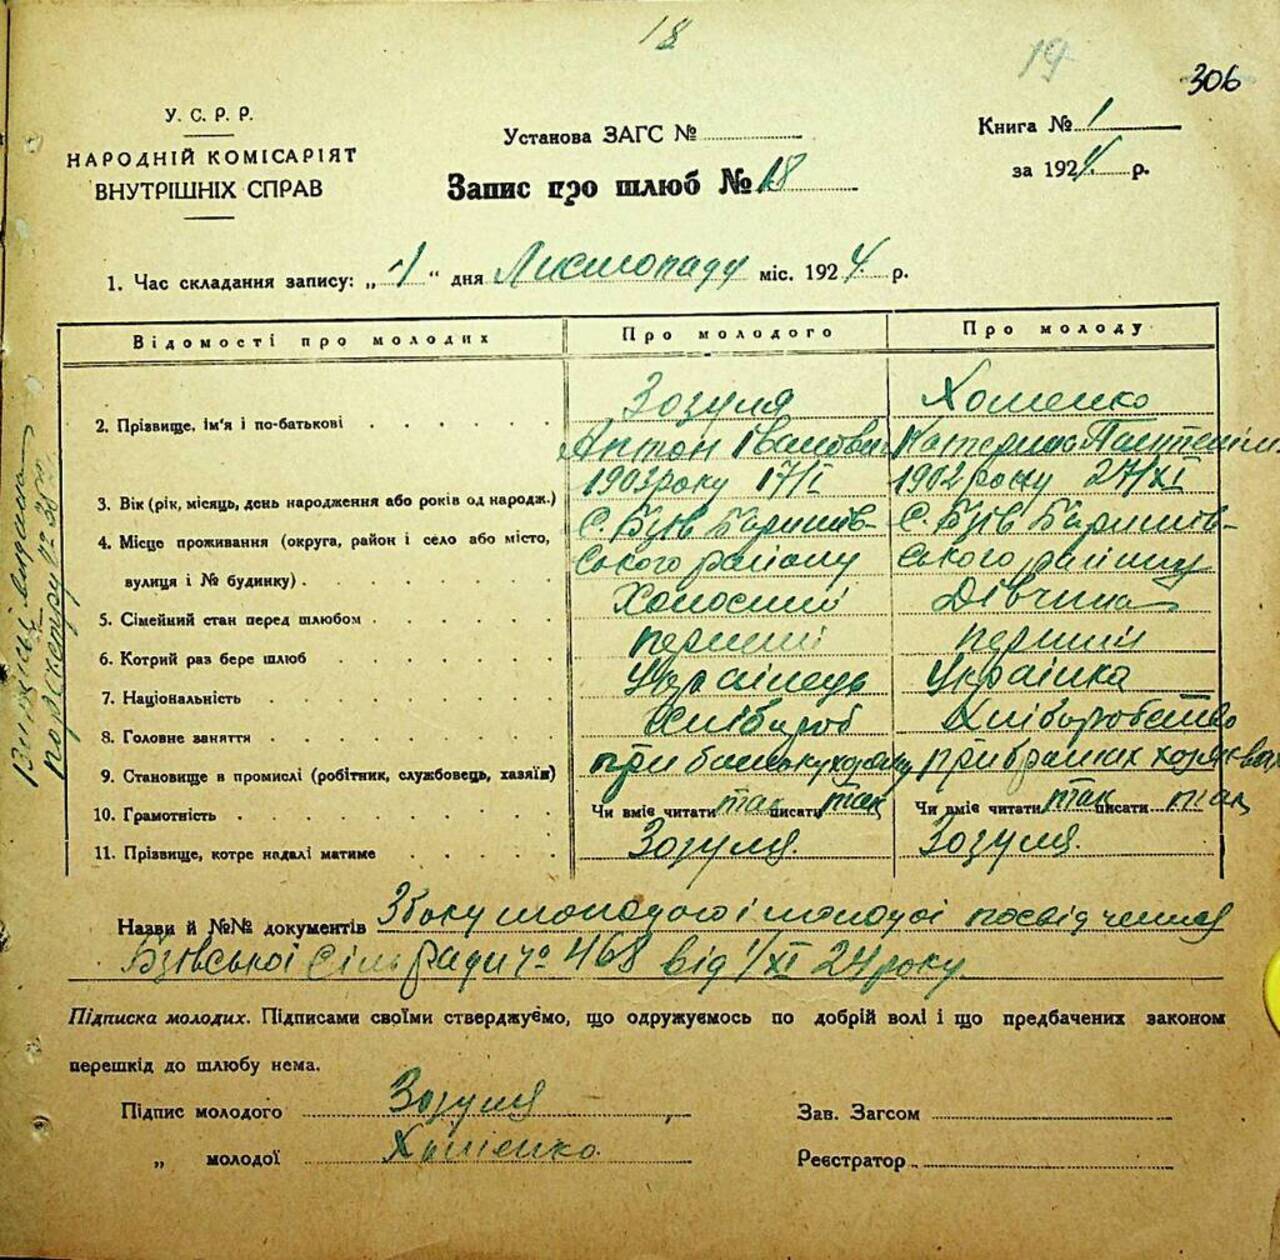 18
19
306
У. С. Р. Р.
НАРОДНІЙ КОМІСАРІЯТ
ВНУТРІШНІХ СПРАВ
Установа ЗАГС №
Запис про шлюб № 18
Книга № 1
за 1924 р.
1. Час складання запису: „1“ дня Листопаду міс. 1924 р.
Відомості про молодих Про молодого Про молоду
2. Прізвище, ім'я і по-батькові Зозуля Хоменко
Антон Іванович Катерина
3. Вік (рік, місяць, день народження або років од народж.) 1903 року 17/I 1902 року 27/XI
4. Місце проживання (округа, район і село або місто, С. Бзів Баришів- С. Бзів Баришів-
вулиця і № будинку) ського району ського району
5. Сімейний стан перед шлюбом Холостий Дівчина
6. Котрий раз бере шлюб перший перший
7. Національність Українець Українка
8. Головне заняття Хлібороб Хліборобство
9. Становище в промислі (робітник, службовець, хазяїн) при батьку при братах
10. Грамотність Чи вміє читати так писати так Чи вміє читати так писати так
11. Прізвище, котре надалі матиме Зозуля. Зозуля.
Назви й №№ документів З боку молодого і молодої посвідчення
Бзівської Сільради № 468 від 1/XI 24 року.
Підписка молодих. Підписами своїми стверджуємо, що одружуємось по добрій волі і що предбачених законом
перешкід до шлюбу нема.
Підпис молодого Зозуля
„ молодої Хоменко.
Зав. Загсом
Реєстратор
Виписъ видана